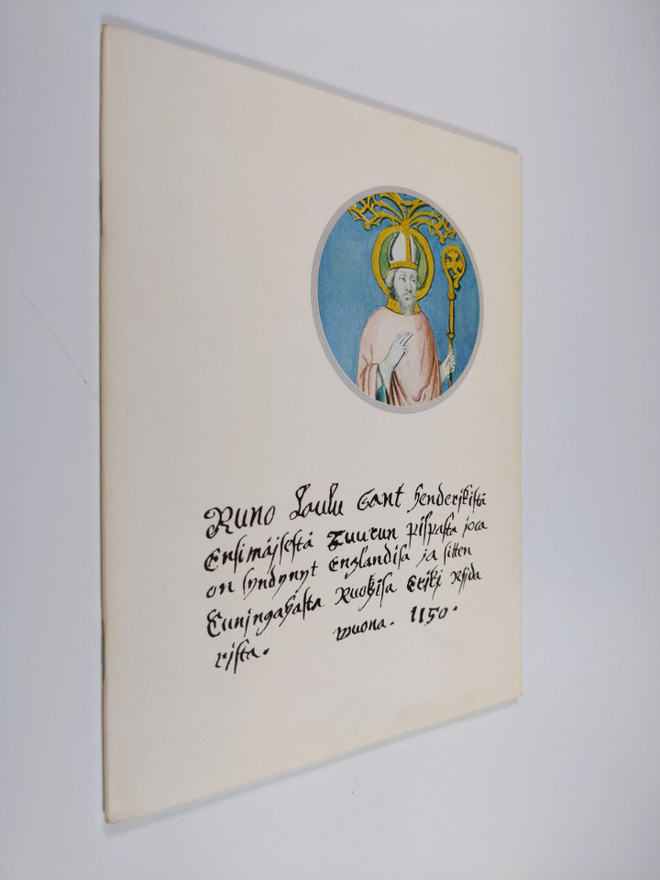 Runo Laulu Sant henderikistä
Ensimäjsestä Tuurun pispasta joca
on syndynyt Englandisa ja sitten
Cuningahasta Ruotzisa Erikj
rista. wuona. 1150.